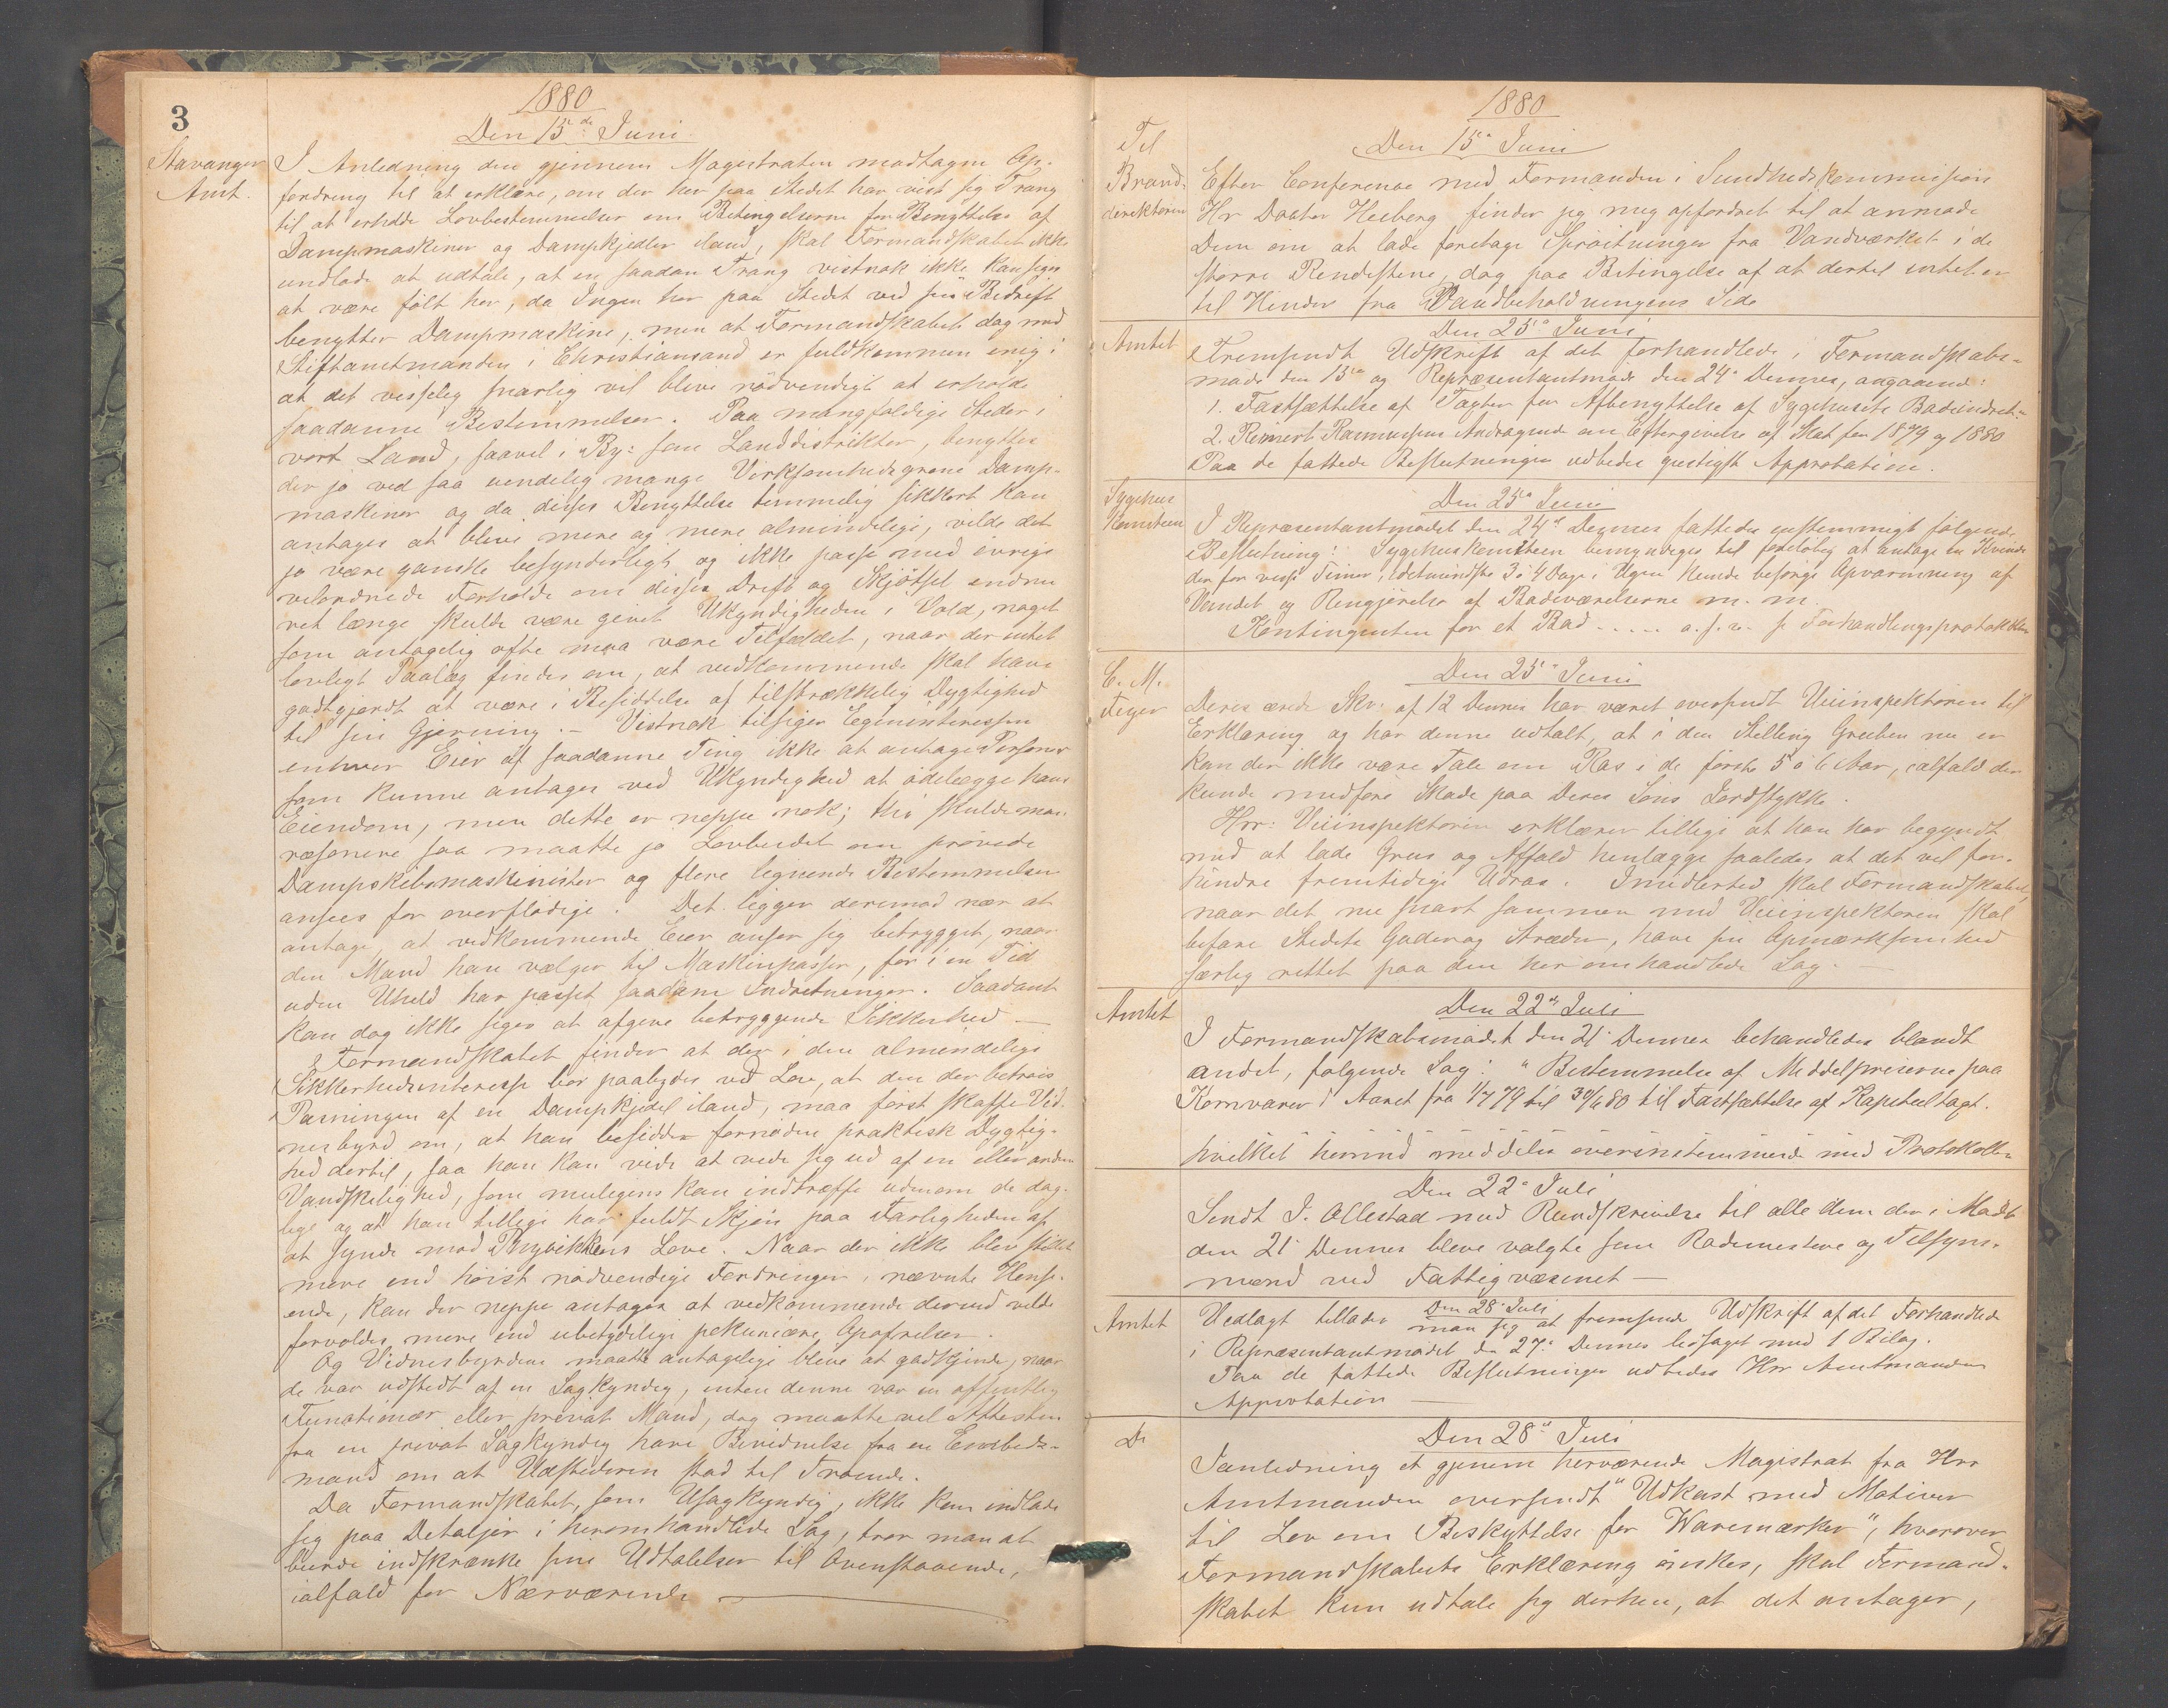 3
1880
Den 15de Juni
Stavanger
Amt.
I Anledning den gjennem Magistraten modtagne Op-
fordring til at erklære, om der her paa Stedet har vist sig Trang
til at erholde Lovbestemmelser om Betingelserne for Benyttelse af
Dampmaskiner og Dampkjedler iland, skal Formandskabet ikke
undlade at udtale, at en saadan Trang vistnok ikke kan siges
at være følt her, da Ingen her paa Stedet ved sin Bedrift
benytter Dampmaskine, men at Formandskabet dog med
Stiftamtmanden i Christiansand er fuldkommen enig i
at det visselig snarlig vil blive nødvendigt at erholde
saadanne Bestemmelser. Paa mangfoldige Steder i
vort Land, saavel i By: som Landdistrikter, benyttes
der jo ved saa uendelig mange Virksomhedsgrene Damp-
maskiner og da disses Benyttelse temmelig sikkert kan
antages at blive mere og mere almindelige, vilde det
jo være ganske besynderligt og ikke passe med øvrige
velordnede Forholde om disses Drift og Skjøtsel endnu
ret længe skulde være givet Ukyndigheden i Vold, noget
som antagelig ofte maa være Tilfældet, naar der intet
lovligt Paalæg findes om, at vedkommende skal have
godtgjordt at være i Besiddelse af tilstrækkelig Dygtighed
til sin Gjerning. – Vistnok tilsiger Egeninteressen
enhver Eier af saadanne Ting ikke at antage Personer
som kunne antages ved Ukyndighed at ødelægge hans
Eiendom, men dette er neppe nok; thi skulde man
ræsonere saa maatte jo Lovbudet om prøvede
Dampskibsmaskinister og flere lignende Bestemmelser
ansees for overflødige. Det ligger derimod nær at
antage, at vedkommende Eier anser sig betrygget, naar
den Mand han vælger til Maskinpasser, før i en Tid
uden Uheld har passet saadane Indretninger. Saadant
kan dog ikke siges at afgive betryggende Sikkerhed —
Formandskabet finder at der i den almindelige
Sikkerhedsinteresse bør paabydes ved Lov, at den der betroes
Pasningen af en Dampkjedel iland, maa først skaffe Vid-
nesbyrd om, at han besidder fornøden praktisk Dygtig-
hed dertil, saa han kan vide at rede sig ud af en eller anden
Vandskelighed, som muligens kan indtræffe udenom de dag-
lige og at han tillige har fuldt Skjøn paa Farligheden af
at synde mod Physikkens Love. Naar der ikke blev stillet
mere end høist nødvendige Fordringer i nævnte Hense-
ende, kan der neppe antages at vedkommende derved vilde
forvoldes mere end ubetydelige pekuniære Opofrelser.
Og Vidnesbyrdene maatte antagelige blive at godkjende, naar
de var udstedt af en Sagkyndig, enten denne var en offentlig
Functionær eller privat Mand, dog maatte vel Attesten
fra en privat Sagkyndig have Bevidnelse fra en Embeds-
mand om at Udstederen stod til Troende.
Da Formandskabet, som Usagkyndig, ikke kan indlade
sig paa Detaljer i heromhandlede Sag, tror man at
burde indskrænke sine Udtalelser til Ovenstaaende,
ialfald for Nærværende —
1880
Den 15de Juni
Til
Brand-
direktøren
Efter Conference med Formanden i Sundhedskommission
Hr Doctor Heiberg finder jeg mig opfordret til at anmode
Dem om at lade foretage Sprøitninger fra Vandværket i de
større Rendestene, dog paa Betingelse af at dertil intet er
til Hinder fra Vandbeholdningens Side
Den 25de Juni
Amtet
Fremsendt Udskrift af det forhandlede i Formandskabs-
møde den 15de og Repræsentantmøde den 24de Dennes, angaaende:
1. Fastsættelse af Taxter for Afbenyttelse af Sygehusets Badeindret-
2. Reinert Rasmussens Andragende om Eftergivelse af Skat for 1879 og 1880
Paa de fattede Beslutninger udbedes gunstigst Approbation.
Den 25de Juni
Sygehus
Komiteen
I Repræsentantmødet den 24de Dennes fattedes enstemmigt følgende
Beslutning: Sygehuskomiteen bemyndiges til foreløbig at antage en Kvinde
der for visse Timer, idetmindste 3 à 4 Dage i Ugen kunde besørge Opvarmning af
Vandet og Rengjørelse af Badeværelserne m. m.
Kontingenten for et Bad ..... o. s. v. se Forhandlingsprotokollen
Den 25de Juni
C. M.
Feyer
Deres ærede Skr. af 12 Dennes har været oversendt Veiinspektøren til
Erklæring og har denne udtalt, at i den Stilling Gruben nu er
kan der ikke være Tale om Ras i de første 5 à 6 Aar, ialfald der
kunde medføre Skade paa Deres Søns Jordstykke.
Hrr: Veiinspektøren erklærer tillige at han har begyndt
med at lade Grus og Affald henlægge saaledes at det vel for-
hindre fremtidige Udras. Imidlertid skal Formandskabet,
naar det nu snart sammen med Veiinspektøren skal
befare Stedets Gader og Stræder, have sin Opmærksomhed
særlig rettet paa den her omhandlede Sag. —
Den 22de Juli
Amtet
I Formandskabsmødet den 21 Dennes behandledes blandt
andet, følgende Sag: "Bestemmelse af Middelpriserne paa
Kornvarer i Aaret fra 1/7 79 til 30/6 80 til Fastsættelse af Kapiteltagt.
hvilket herved meddeles overensstemmende med Protokollen
Den 22de Juli
Sendt J. Ollestad med Rundskrivelse til alle dem der i Mødet
den 21 Dennes bleve valgte som Rodemestere og Tilsyns-
mænd ved Fattigvæsenet —
Den 28 Juli
Amtet
Vedlagt tillader man sig at fremsende Udskrift af det Forhandlede
i Repræsentantmødet den 27de Dennes ledsaget med 1 Bilag.
Paa de fattede Beslutninger udbedes Hrr Amtmandens
Approbation —
Den 28de Juli
Do
Ianledning et gjenem herværende Magistrat fra Hrr
Amtmanden oversendt "Udkast med Motiver
til Lov om Beskyttelse for Waremærker", hvorover
Formandskabets Erklæring ønskes, skal Formand-
skabet kun udtale sig derhen, at det antager,